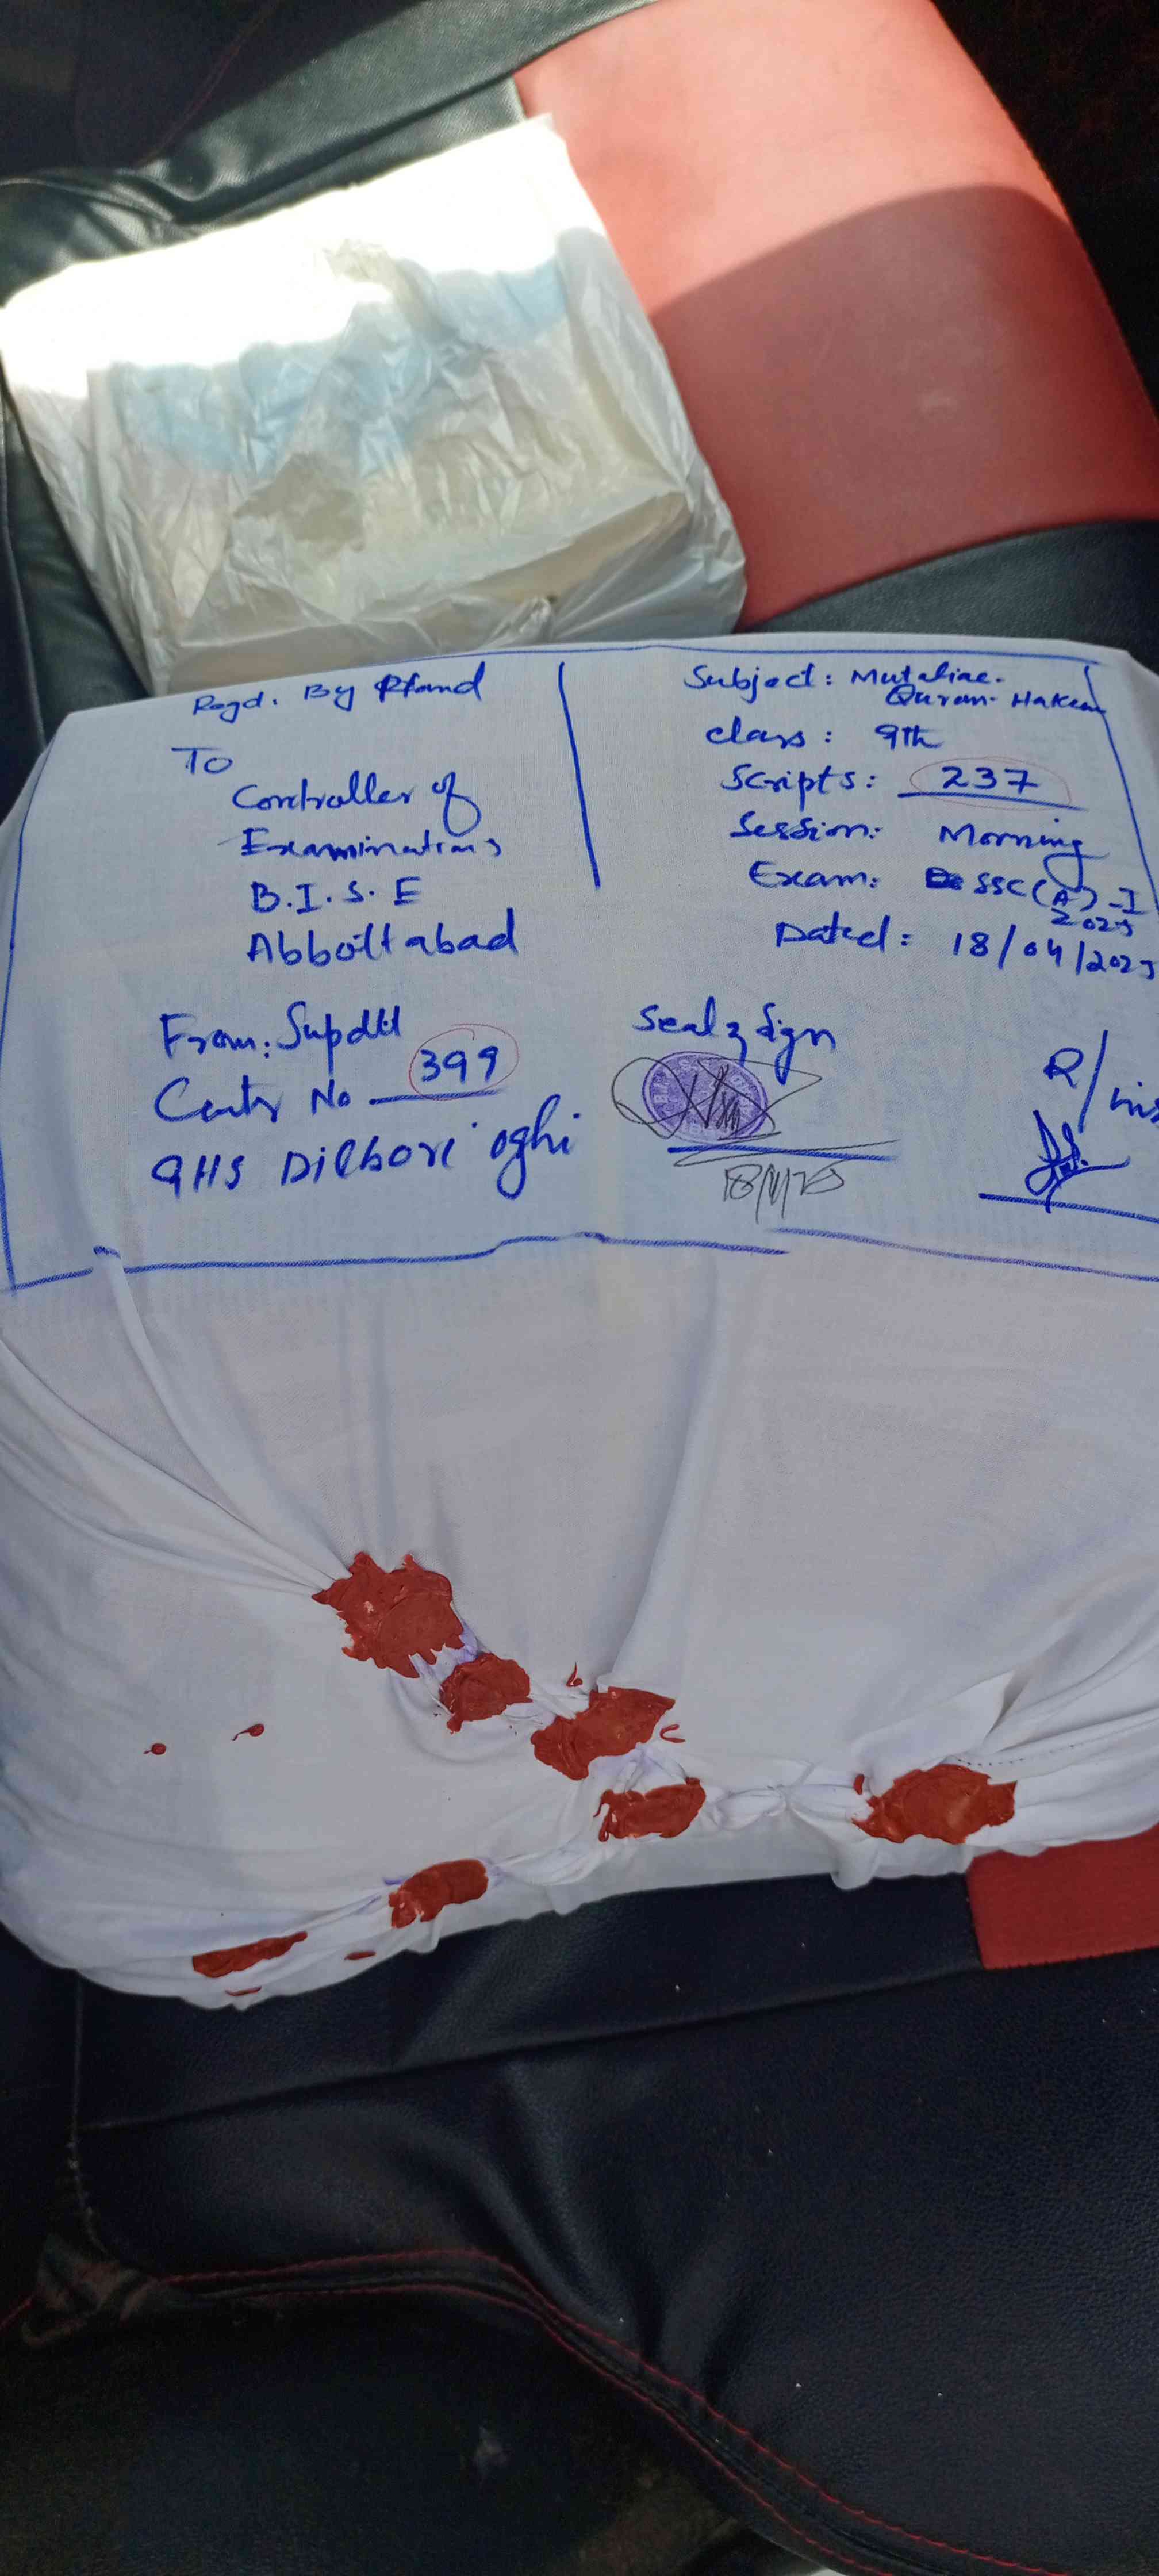 Regd. By Hand
To
Controller of
Examinations
B.I.S.E
Abbottabad
Subject: Mutaliae.
Quran. Hakeem
class: 9th
Scripts: 237
Session: Morning
Exam: SSC(A)-I
2025
Dated: 18/04/2025
From: Supdtt
Centr No 399
GHS Dilbori oghi
Seal & Sign
18/4/25
R/